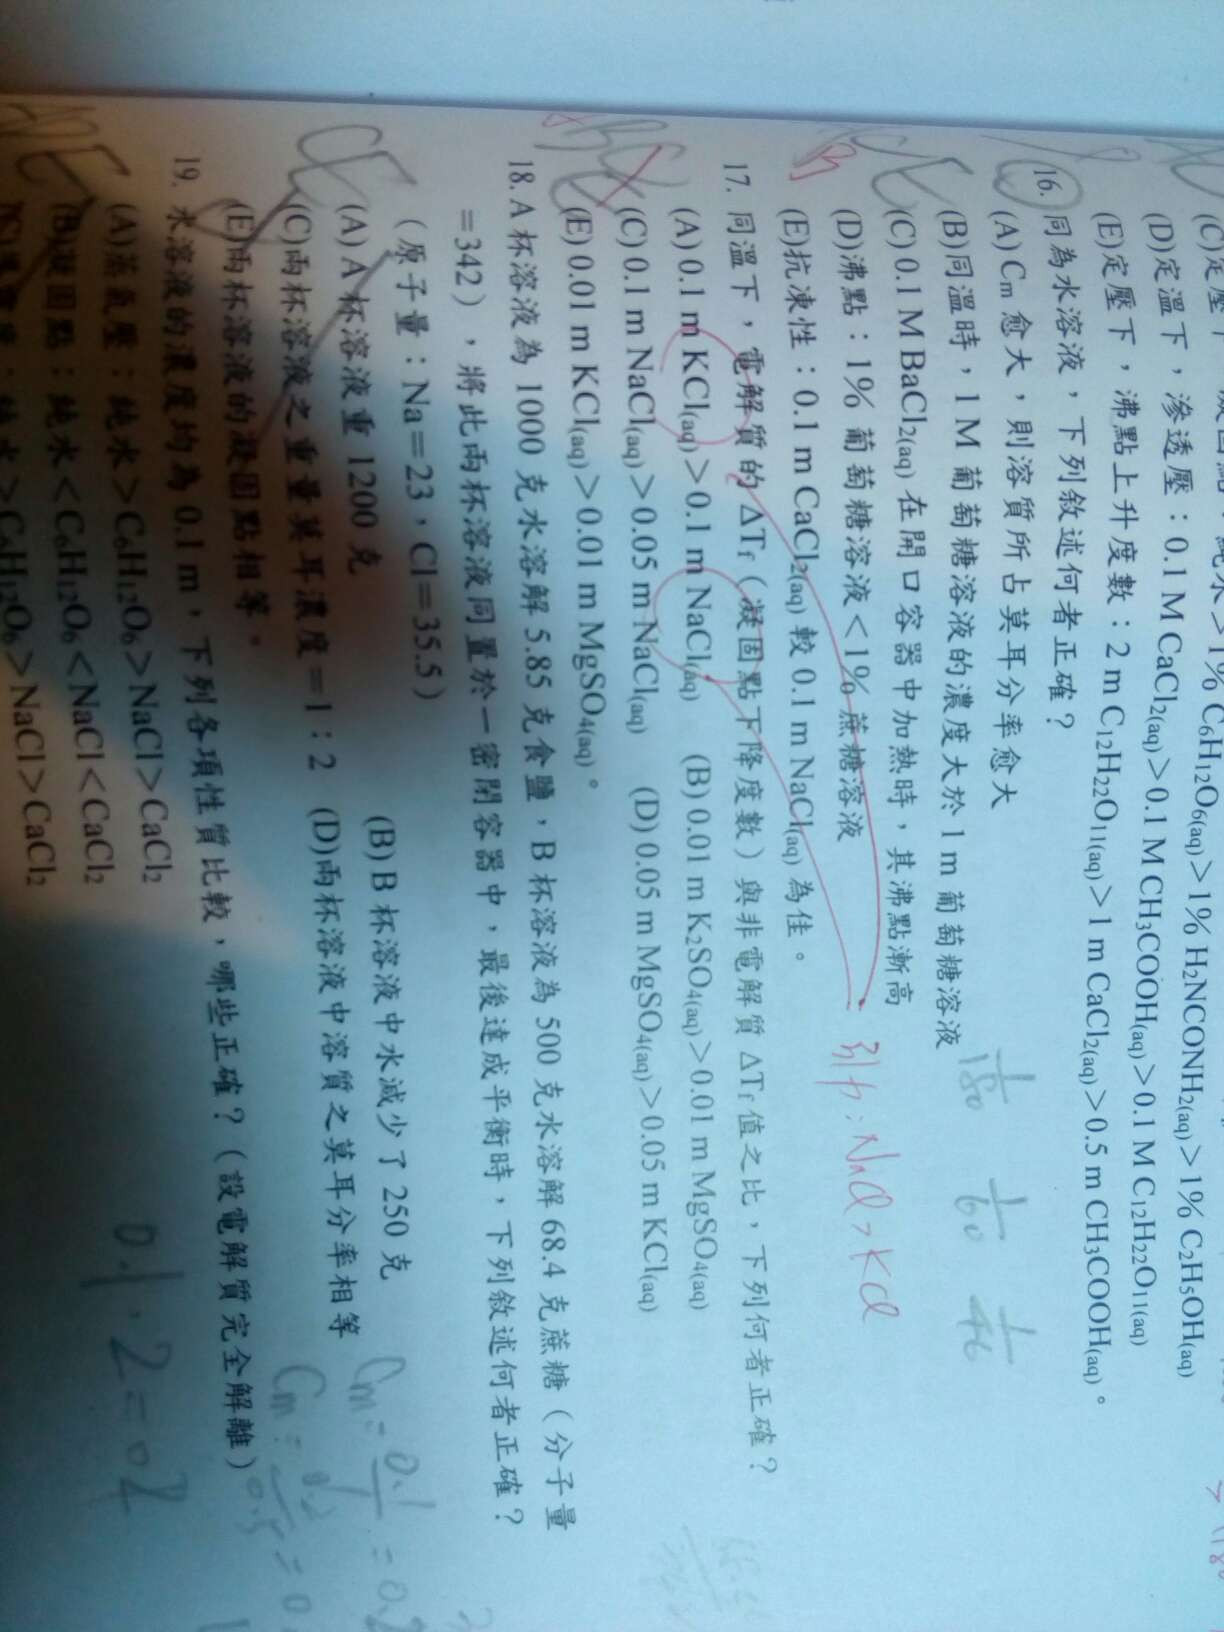 (D)定溫下，滲透壓：0.1 M CaCl2(aq)＞0.1 M CH3COOH(aq)＞0.1 M C12H22O11(aq)
(E)定壓下，沸點上升度數：2 m C12H22O11(aq)＞1 m CaCl2(aq)＞0.5 m CH3COOH(aq)。
16. 同為水溶液，下列敘述何者正確？
(A) Cm 愈大，則溶質所占莫耳分率愈大
(B)同溫時，1 M 葡萄糖溶液的濃度大於 1 m 葡萄糖溶液
(C) 0.1 M BaCl2(aq) 在開口容器中加熱時，其沸點漸高
(D)沸點：1% 葡萄糖溶液＜1% 蔗糖溶液
(E)抗凍性：0.1 m CaCl2(aq) 較 0.1 m NaCl(aq) 為佳。
1/180 1/60 1/46
B
引力：NaCl＞KCl
17. 同溫下，電解質的 ΔTf（凝固點下降度數）與非電解質 ΔTf 值之比，下列何者正確？
(A) 0.1 m KCl(aq)＞0.1 m NaCl(aq) (B) 0.01 m K2SO4(aq)＞0.01 m MgSO4(aq)
(C) 0.1 m NaCl(aq)＞0.05 m NaCl(aq) (D) 0.05 m MgSO4(aq)＞0.05 m KCl(aq)
(E) 0.01 m KCl(aq)＞0.01 m MgSO4(aq)。
18. A 杯溶液為 1000 克水溶解 5.85 克食鹽，B 杯溶液為 500 克水溶解 68.4 克蔗糖（分子量
＝342），將此兩杯溶液同置於一密閉容器中，最後達成平衡時，下列敘述何者正確？
（原子量：Na＝23，Cl＝35.5）
(A) A 杯溶液重 1200 克 (B) B 杯溶液中水減少了 250 克
(C)兩杯溶液之重量莫耳濃度＝1：2 (D)兩杯溶液中溶質之莫耳分率相等
(E)兩杯溶液的凝固點相等。
Cm = 0.1/1 = 0.2
Cm = 0.2/0.5
19. 水溶液的濃度均為 0.1 m，下列各項性質比較，哪些正確？（設電解質完全解離）
(A)蒸氣壓：純水＞C6H12O6＞NaCl＞CaCl2
(B)凝固點：純水＜C6H12O6＜NaCl＜CaCl2
0.1·2=0.2